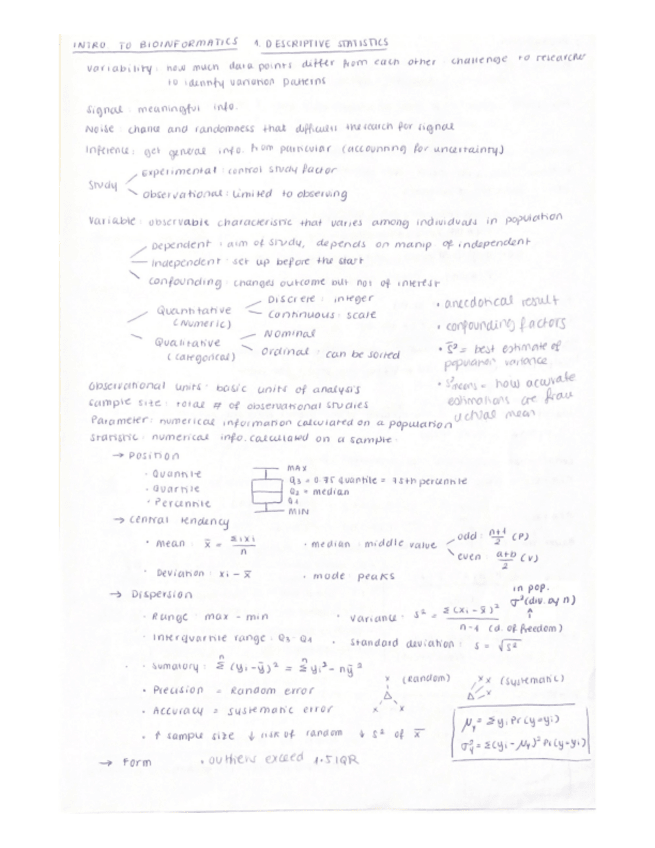 INTRO. TO BIOINFORMATICS 1. DESCRIPTIVE STATISTICS
Variability: how much data points differ from each other · challenge to researcher
to identify variation patterns
Signal: meaningful info.
Noise: chance and randomness that difficults the search for signal
Inference: get general info. from particular (accounting for uncertainty)
Study
Experimental: control study factor
Observational: limited to observing
Variable: observable characteristic that varies among individuals in population
Dependent: aim of study, depends on manip of independent
Independent: set up before the start
Confounding: changes outcome but not of interest
Quantitative (Numeric)
Discrete: integer
Continuous: scale
Qualitative (categorical)
Nominal
Ordinal: can be sorted
· anecdotical result
· confounding factors
· s̄² = best estimate of
population variance
· s²means = how accurate
estimations are from
actual mean
Observational units: basic units of analysis
Sample size: total # of observational studies
Parameter: numerical information calculated on a population
Statistic: numerical info. calculated on a sample.
→ Position
· Quantile
· Quartile
· Percentile
MAX
Q3 = 0.75 quantile = 75th percentile
Q2 = median
Q1
MIN
→ Central tendency
· mean: x̄ = Σixi / n
· median: middle value
odd: n+1 / 2 (P)
even: a+b / 2 (V)
· Deviation: xi - x̄
· mode peaks
→ Dispersion
· Range: max - min
· Variance: s² = Σ(xi - x̄)² / n-1 (d. of freedom)
in pop.
σ² (div. by n)
· Interquartile range: Q3 - Q1
· Standard deviation: s = √s²
· Sumatory: Σⁿ (yi - ȳ)² = Σⁿ yi² - nȳ²
· Precision = Random error
x (Random)
x x
xx (systematic)
x
· Accuracy = systematic error
· ↑ sample size ↓ risk of random ↓ s² of x̄
μy = Σ yi Pr(y=yi)
σ²y = Σ(yi - μy)² Pr(y=yi)
→ Form
· outliers exceed 1.5 IQR